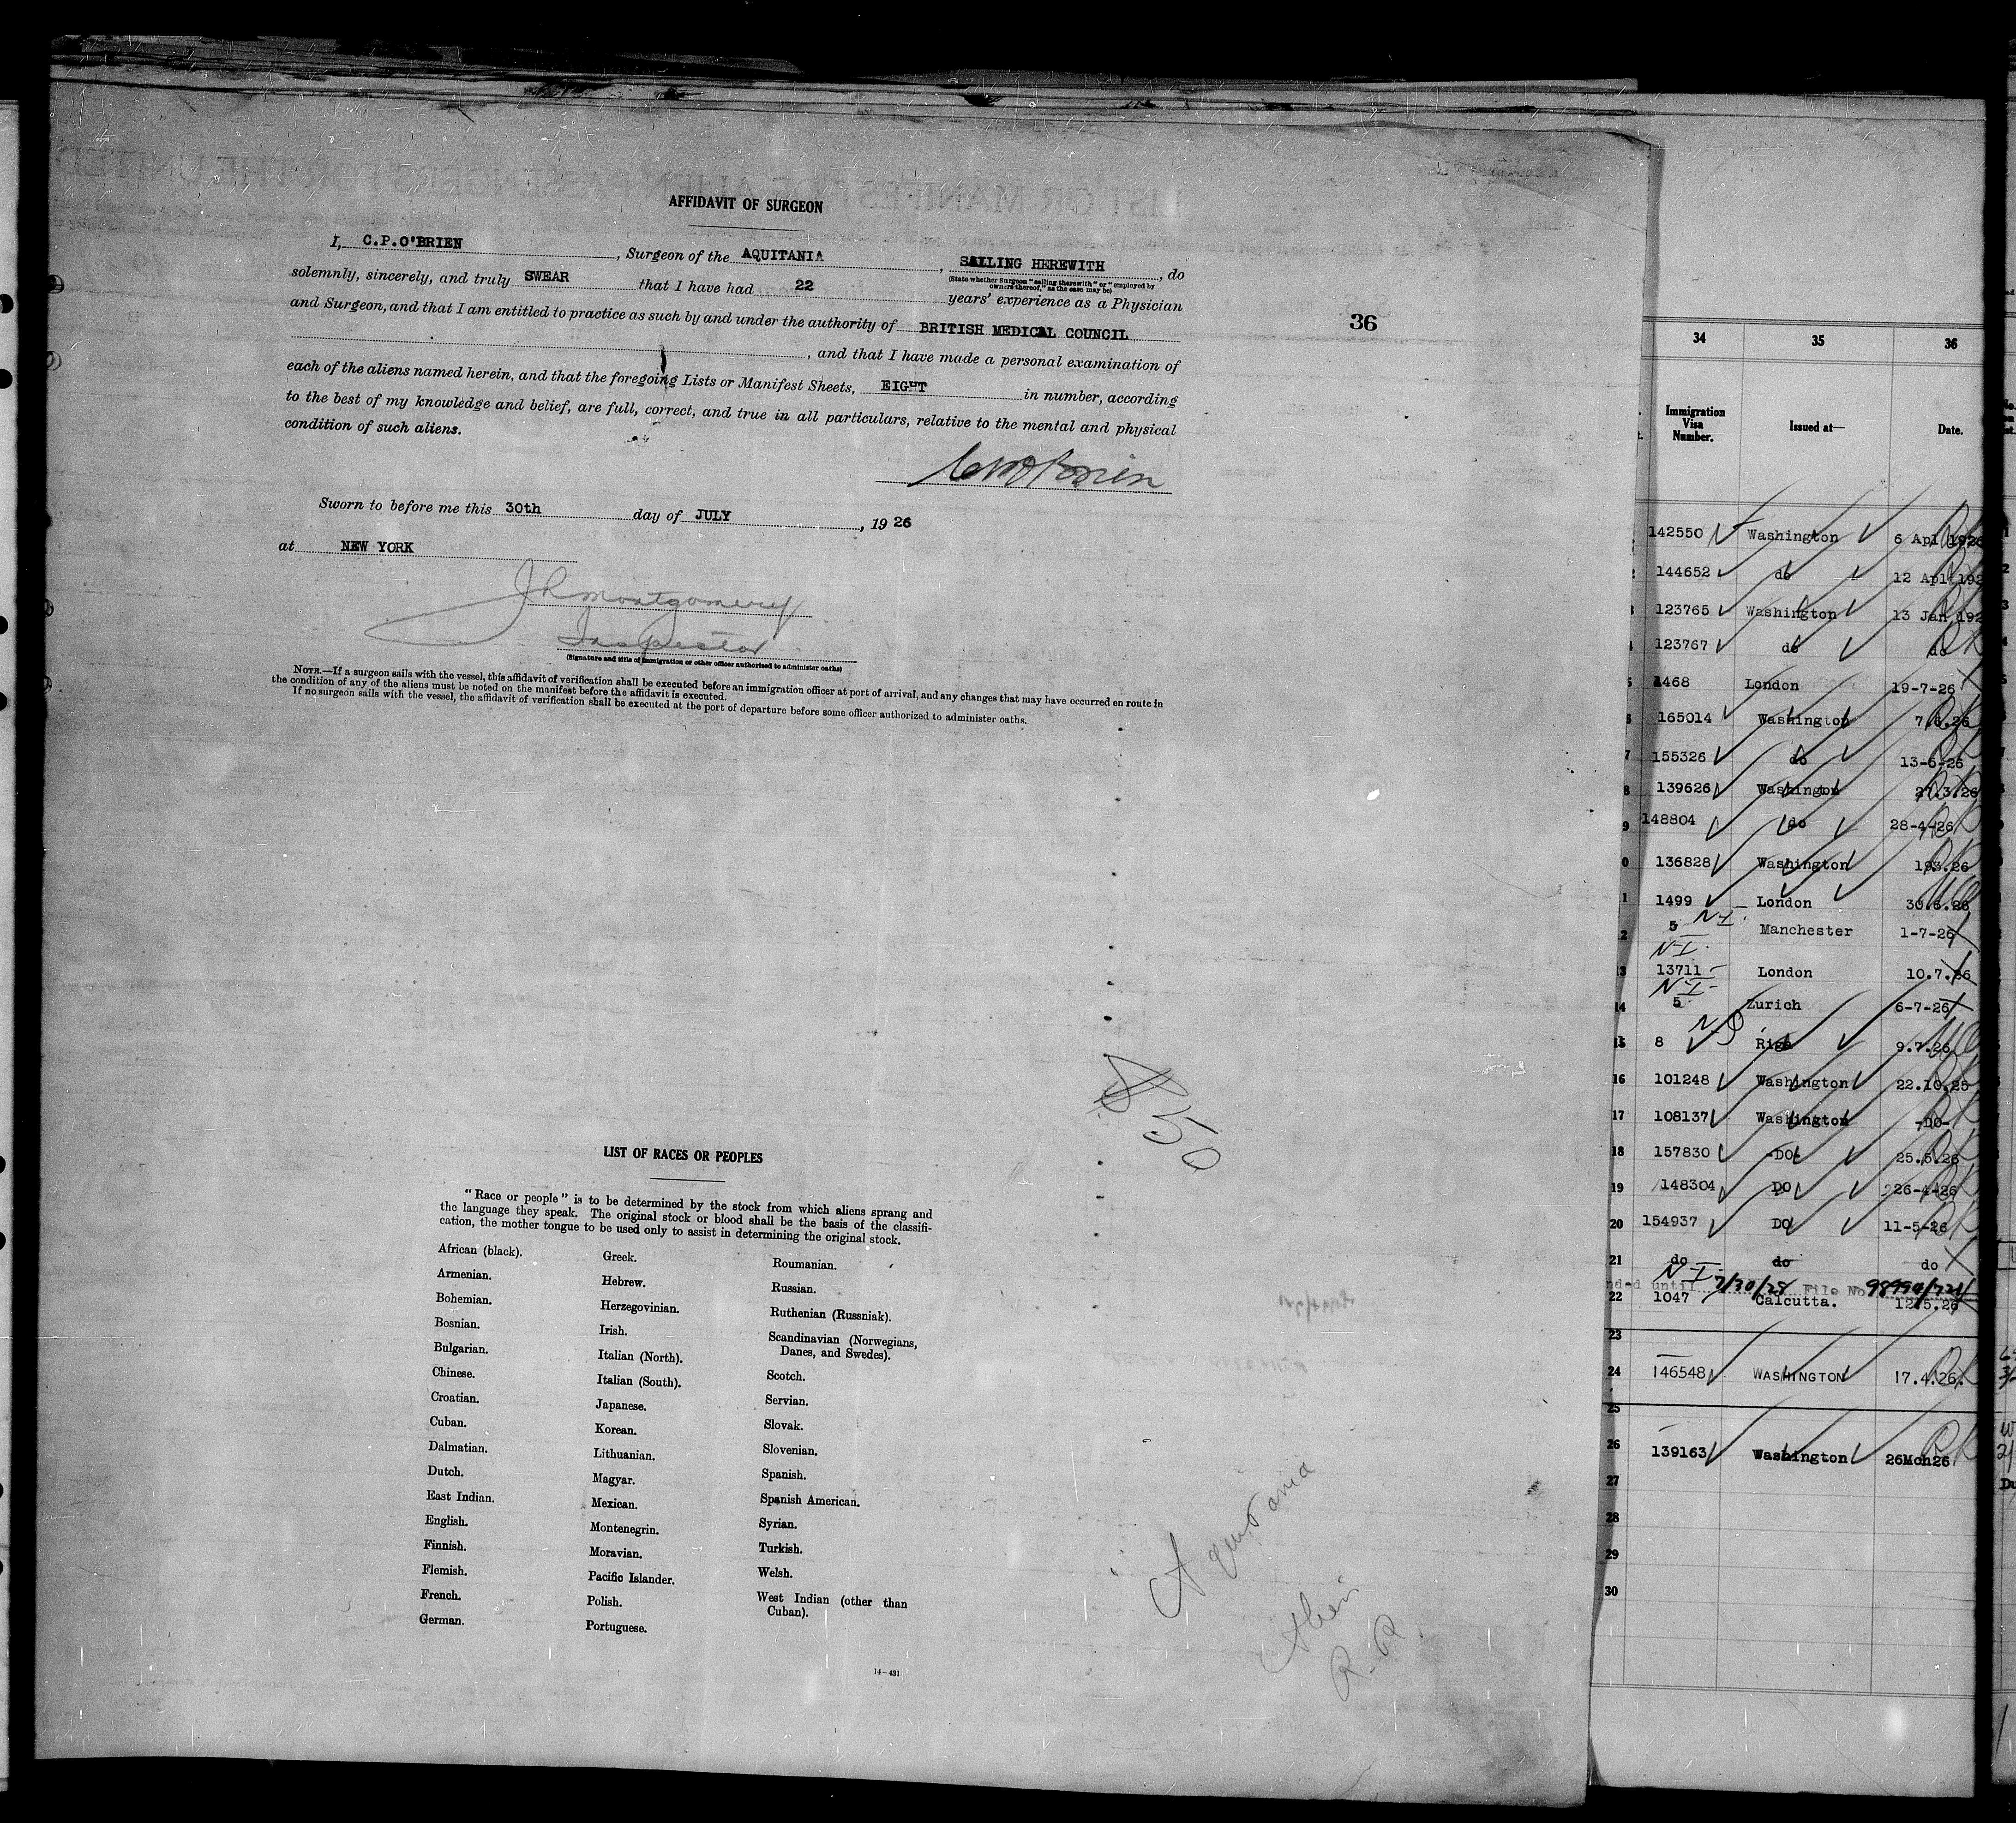 AFFIDAVIT OF SURGEON
I, C.P.O'BRIEN , Surgeon of the AQUITANIA , SAILING HEREWITH , do
(State whether Surgeon "sailing therewith" or "employed by
owners thereof," as the case may be)
solemnly, sincerely, and truly SWEAR that I have had 22 years' experience as a Physician
and Surgeon, and that I am entitled to practice as such by and under the authority of BRITISH MEDICAL COUNCIL
, and that I have made a personal examination of
each of the aliens named herein, and that the foregoing Lists or Manifest Sheets, EIGHT in number, according
to the best of my knowledge and belief, are full, correct, and true in all particulars, relative to the mental and physical
condition of such aliens.
Sworn to before me this 30th day of JULY , 19 26
at NEW YORK
JRMontgomery
Inspector
(Signature and title of immigration or other officer authorized to administer oaths)
NOTE.—If a surgeon sails with the vessel, this affidavit of verification shall be executed before an immigration officer at port of arrival, and any changes that may have occurred en route in
the condition of any of the aliens must be noted on the manifest before the affidavit is executed.
If no surgeon sails with the vessel, the affidavit of verification shall be executed at the port of departure before some officer authorized to administer oaths.
36
850
LIST OF RACES OR PEOPLES
"Race or people" is to be determined by the stock from which aliens sprang and
the language they speak. The original stock or blood shall be the basis of the classifi-
cation, the mother tongue to be used only to assist in determining the original stock.
African (black).
Armenian.
Bohemian.
Bosnian.
Bulgarian.
Chinese.
Croatian.
Cuban.
Dalmatian.
Dutch.
East Indian.
English.
Finnish.
Flemish.
French.
German.
Greek.
Hebrew.
Herzegovinian.
Irish.
Italian (North).
Italian (South).
Japanese.
Korean.
Lithuanian.
Magyar.
Mexican.
Montenegrin.
Moravian.
Pacific Islander.
Polish.
Portuguese.
Roumanian.
Russian.
Ruthenian (Russniak).
Scandinavian (Norwegians,
Danes, and Swedes).
Scotch.
Servian.
Slovak.
Slovenian.
Spanish.
Spanish American.
Syrian.
Turkish.
Welsh.
West Indian (other than
Cuban).
14—431
Aquitania
Alien
R-R
34 35 36
Immigration
Visa
Number.
Issued at—
Date.
142550 Washington 6 Apl 1926
144652 do 12 Apl 192
123765 Washington 13 Jan 192
123767 do do
1468 London 19-7-26
165014 Washington 7.6.26
7 155326 do 13-5-26
8 139626 Washington 27.3.26
9 148804 do 28-4-26
0 136828 Washington 193.26
1 1499 London 30.6.26
N-I.
2 5 Manchester 1-7-26
N-I.
13 13711 London 10.7.26
N-I-
14 5 Zurich 6-7-26
15 8 Riga 9.7.26
16 101248 Washington 22.10.25
17 108137 Washington -DO-
18 157830 -DO- 25.5.26
19 148304 DO 26-4-26
20 154937 DO 11-5-26
21 do do do
N-I.
nded until 7/30/28 File No 98990/721
22 1047 Calcutta. 12.5.26
23
24 146548 WASHINGTON 17.4.26.
25
26 139163 Washington 26Mch26
27
28
29
30